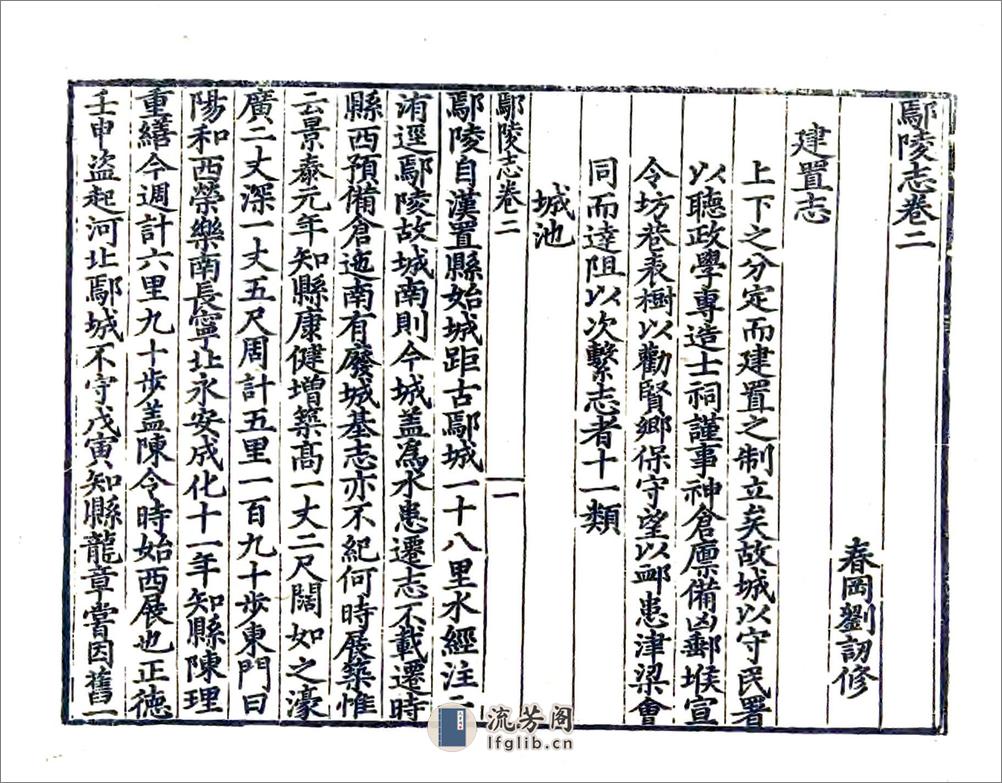 鄢陵志卷二
春岡劉訒修
建置志
上下之分定而建置之制立矣故城以守民署
以聽政學專造士祠謹事神倉廩備凶郵堠宣
令坊巷表樹以勸賢鄉保守望以邮患津梁會
同而達阻以次繫志者十一類
城池
鄢陵志卷二
一
鄢陵自漢置縣始城距古鄢城一十八里水經注云
洧逕鄢陵故城南則今城盖為水患遷志不載遷時
縣西預備倉迤南有廢城基志亦不紀何時展築惟
云景泰元年知縣康健增築高一丈二尺闊如之濠
廣二丈深一丈五尺周計五里一百九十步東門曰
陽和西榮樂南長寧北永安成化十一年知縣陳理
重繕今週計六里九十步盖陳令時始西展也正德
壬申盜起河北鄢城不守戊寅知縣龍章嘗因舊一
流芳阁
lfglib.cn